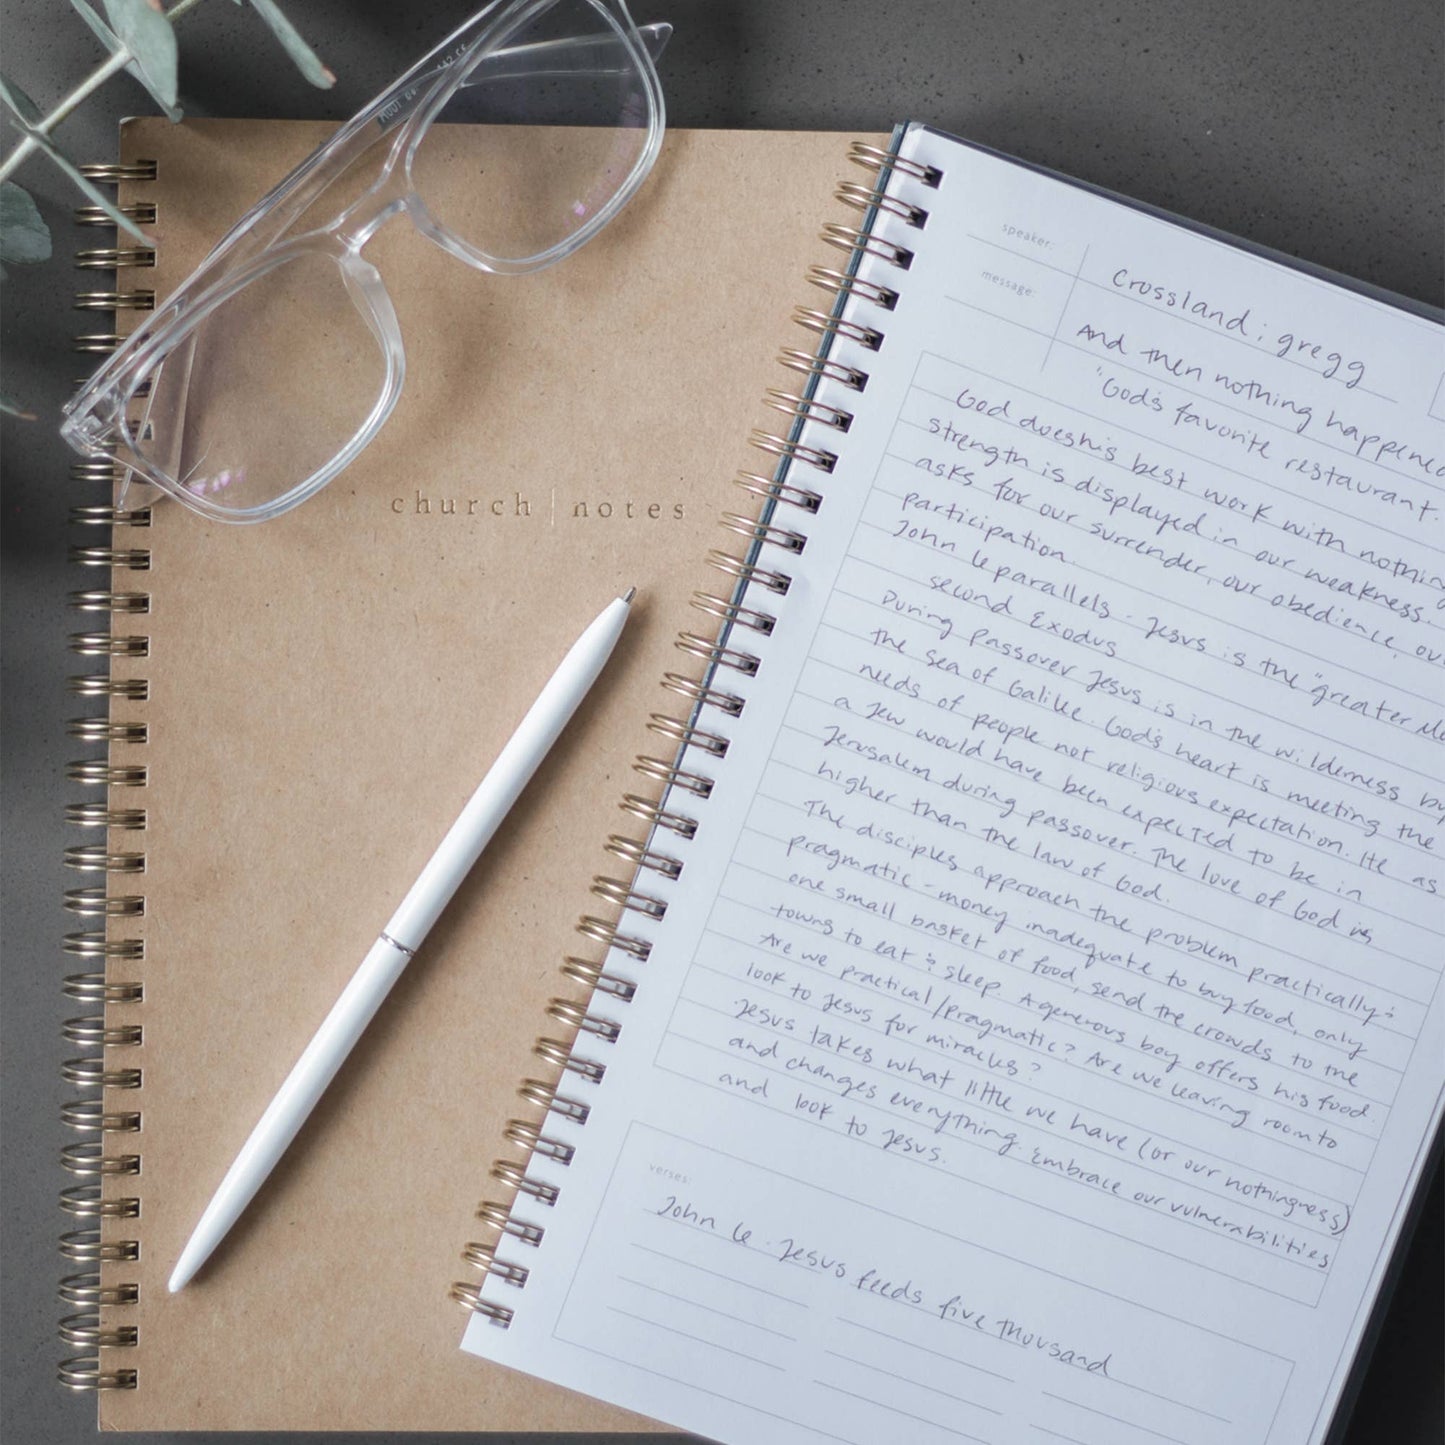 church | notes
speaker:
Crossland; gregg
message:
And then nothing happened
"God's favorite restaurant.
God does his best work with nothing
strength is displayed in our weakness.
asks for our surrender, our obedience, our
participation.
John 6 parallels. Jesus is the "greater
second Exodus
During passover Jesus is in the wilderness by
the Sea of Galilee. God's heart is meeting the
needs of people not religious expectation. He as
a Jew would have been expected to be in
Jerusalem during passover. The love of God is
higher than the law of God.
The disciples approach the problem practically &
pragmatic - money inadequate to buy food, only
one small basket of food, send the crowds to the
towns to eat & sleep. A generous boy offers his food.
Are we practical/pragmatic? Are we leaving room to
look to Jesus for miracles?
Jesus takes what little we have (or our nothingness)
and changes everything. Embrace our vulnerabilities
and look to Jesus.
verses:
John 6. Jesus feeds five thousand